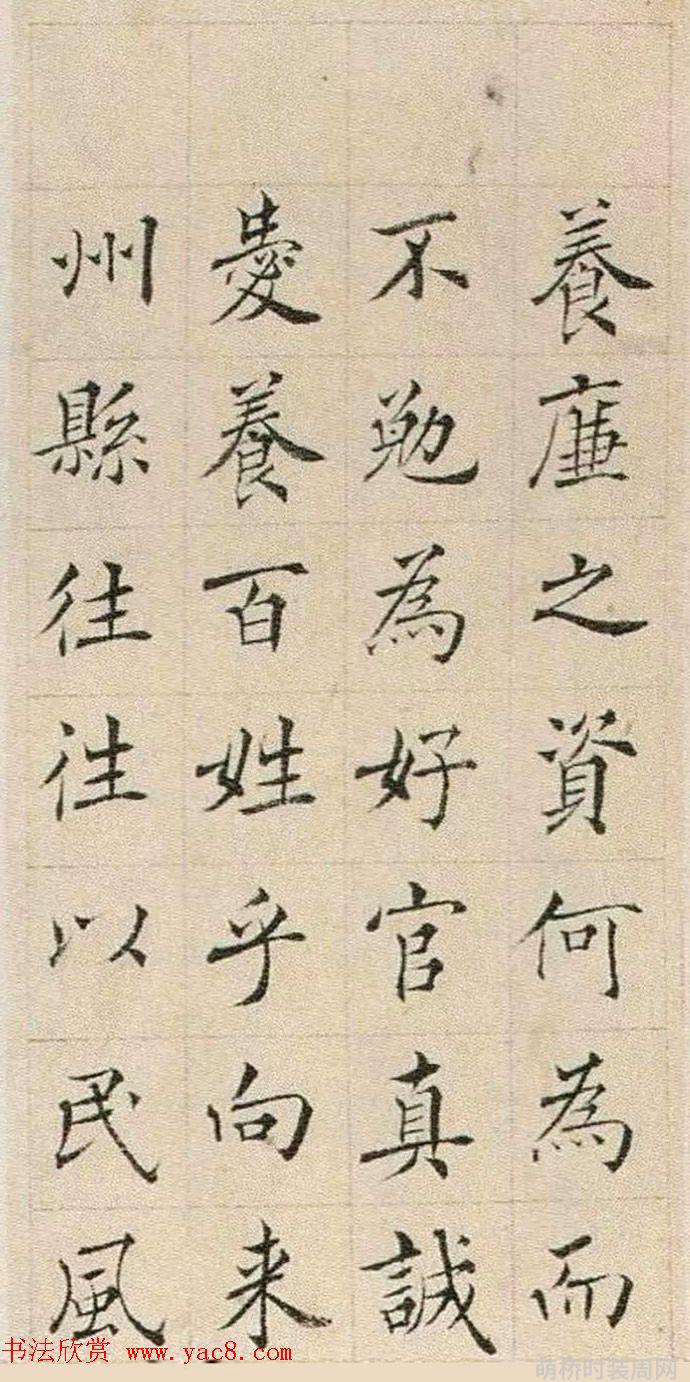 養廉之資何為而
不勉為好官真誠
愛養百姓乎向来
州縣往往以民風
书法欣赏 www.yac8.com
萌桥时装周网